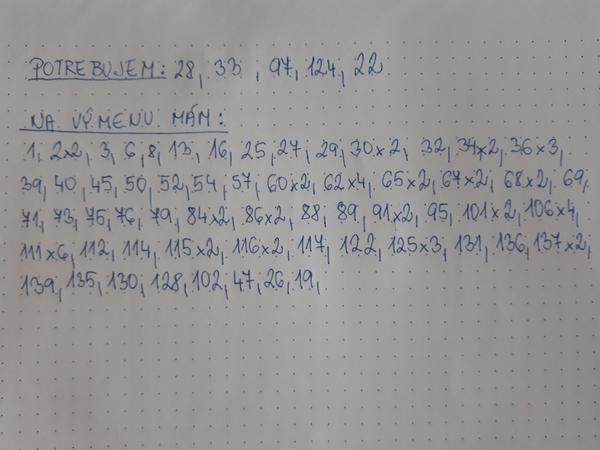 POTREBUJEM: 28, 33, 97, 124, 22
NA VÝMENU MÁM:
1, 2x2, 3, 6, 8, 13, 16, 25, 27, 29, 30x2, 32, 34x2, 36x3,
39, 40, 45, 50, 52, 54, 57, 60x2, 62x4, 65x2, 67x2, 68x2, 69,
71, 73, 75, 76, 79, 84x2, 86x2, 88, 89, 91x2, 95, 101x2, 106x4,
111x6, 112, 114, 115x2, 116x2, 117, 122, 125x3, 131, 136, 137x2,
139, 135, 130, 128, 102, 47, 26, 19,